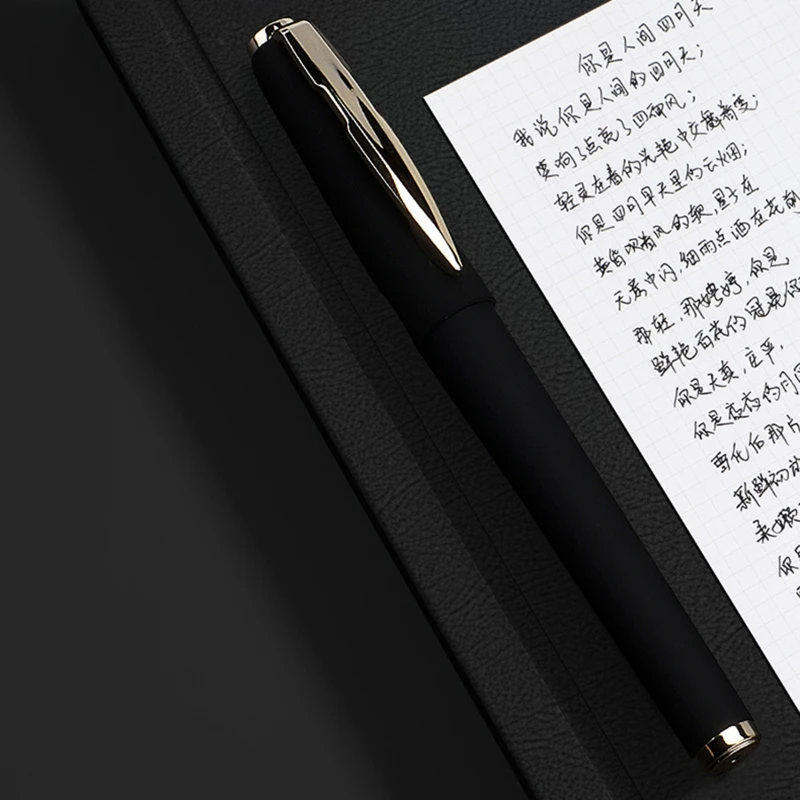 你是人间四月天
我说你是人间的四月天；
笑响了点亮了四面风；
轻灵在春的光艳中交舞着变；
你是四月早天里的云烟；
黄昏吹着风的软，星子在
无意中闪，细雨点洒在花前
那轻，那娉婷，你是
鲜艳百花的冠冕你
你是天真，庄严，
你是夜夜的月圆
雪化后那片
新鲜初放
柔嫩
你是